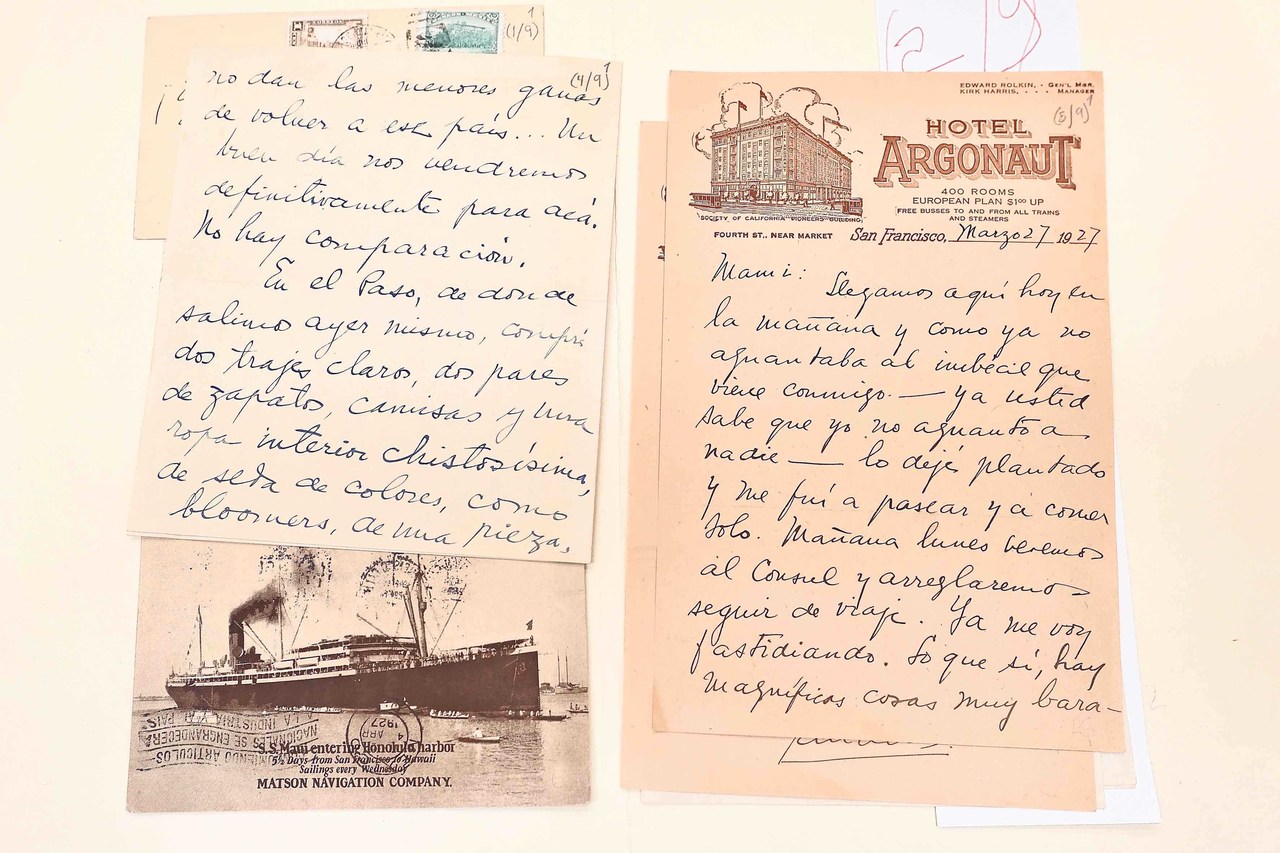 (1/9)
(4/9)
no dan las menores ganas
de volver a este país... Un
buen día nos vendremos
definitivamente para acá.
No hay comparación.
En el Paso, de donde
salimos ayer mismo, compré
dos trajes claros, dos pares
de zapatos, camisas y una
ropa interior chistosísima,
de seda de colores, como
bloomers, de una pieza,
ARTICULOS
NACIONALES SE ENGRANDECERA
LA INDUSTRIA
PAIS
4
ABR
1927
S.S. Maui entering Honolulu harbor
5½ Days from San Francisco to Hawaii
Sailings every Wednesday
MATSON NAVIGATION COMPANY.
EDWARD ROLKIN, - GEN'L MGR.
KIRK HARRIS, - - - MANAGER
HOTEL
ARGONAUT
400 ROOMS
EUROPEAN PLAN $1.00 UP
FREE BUSSES TO AND FROM ALL TRAINS
AND STEAMERS
"SOCIETY OF CALIFORNIA PIONEERS BUILDING"
FOURTH ST., NEAR MARKET
San Francisco, Marzo 27 1927
Mami:
Llegamos aquí hoy en
la mañana y como ya no
aguantaba al imbécil que
viene conmigo. — ya usted
sabe que yo no aguanto a
nadie — lo dejé plantado
y me fuí a pasear y a comer
solo. Mañana lunes veremos
al Consul y arreglaremos
seguir de viaje. Ya me voy
fastidiando. Lo que sí, hay
magníficas cosas muy bara-